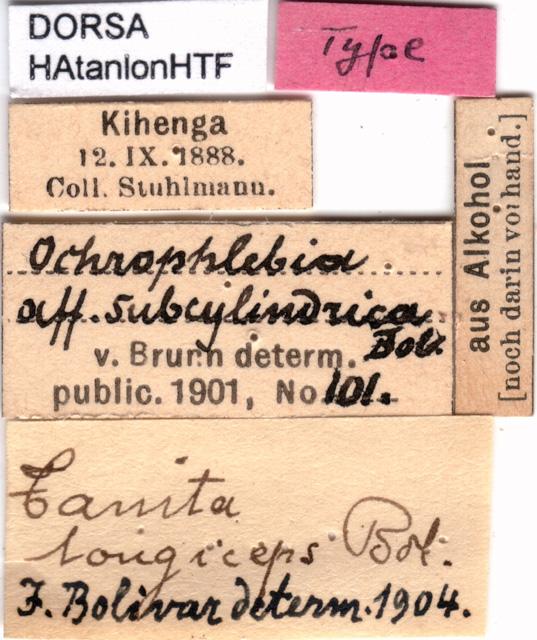 DORSA
HAtanlonHTF
Type
Kihenga
12. IX. 1888.
Coll. Stuhlmann.
aus Alkohol
[noch darin vorhand.]
Ochrophlebia
aff. subcylindrica
Bol.
v. Brunn determ.
public. 1901, No 101.
Tanita
longiceps Bol.
I. Bolivar determ. 1904.